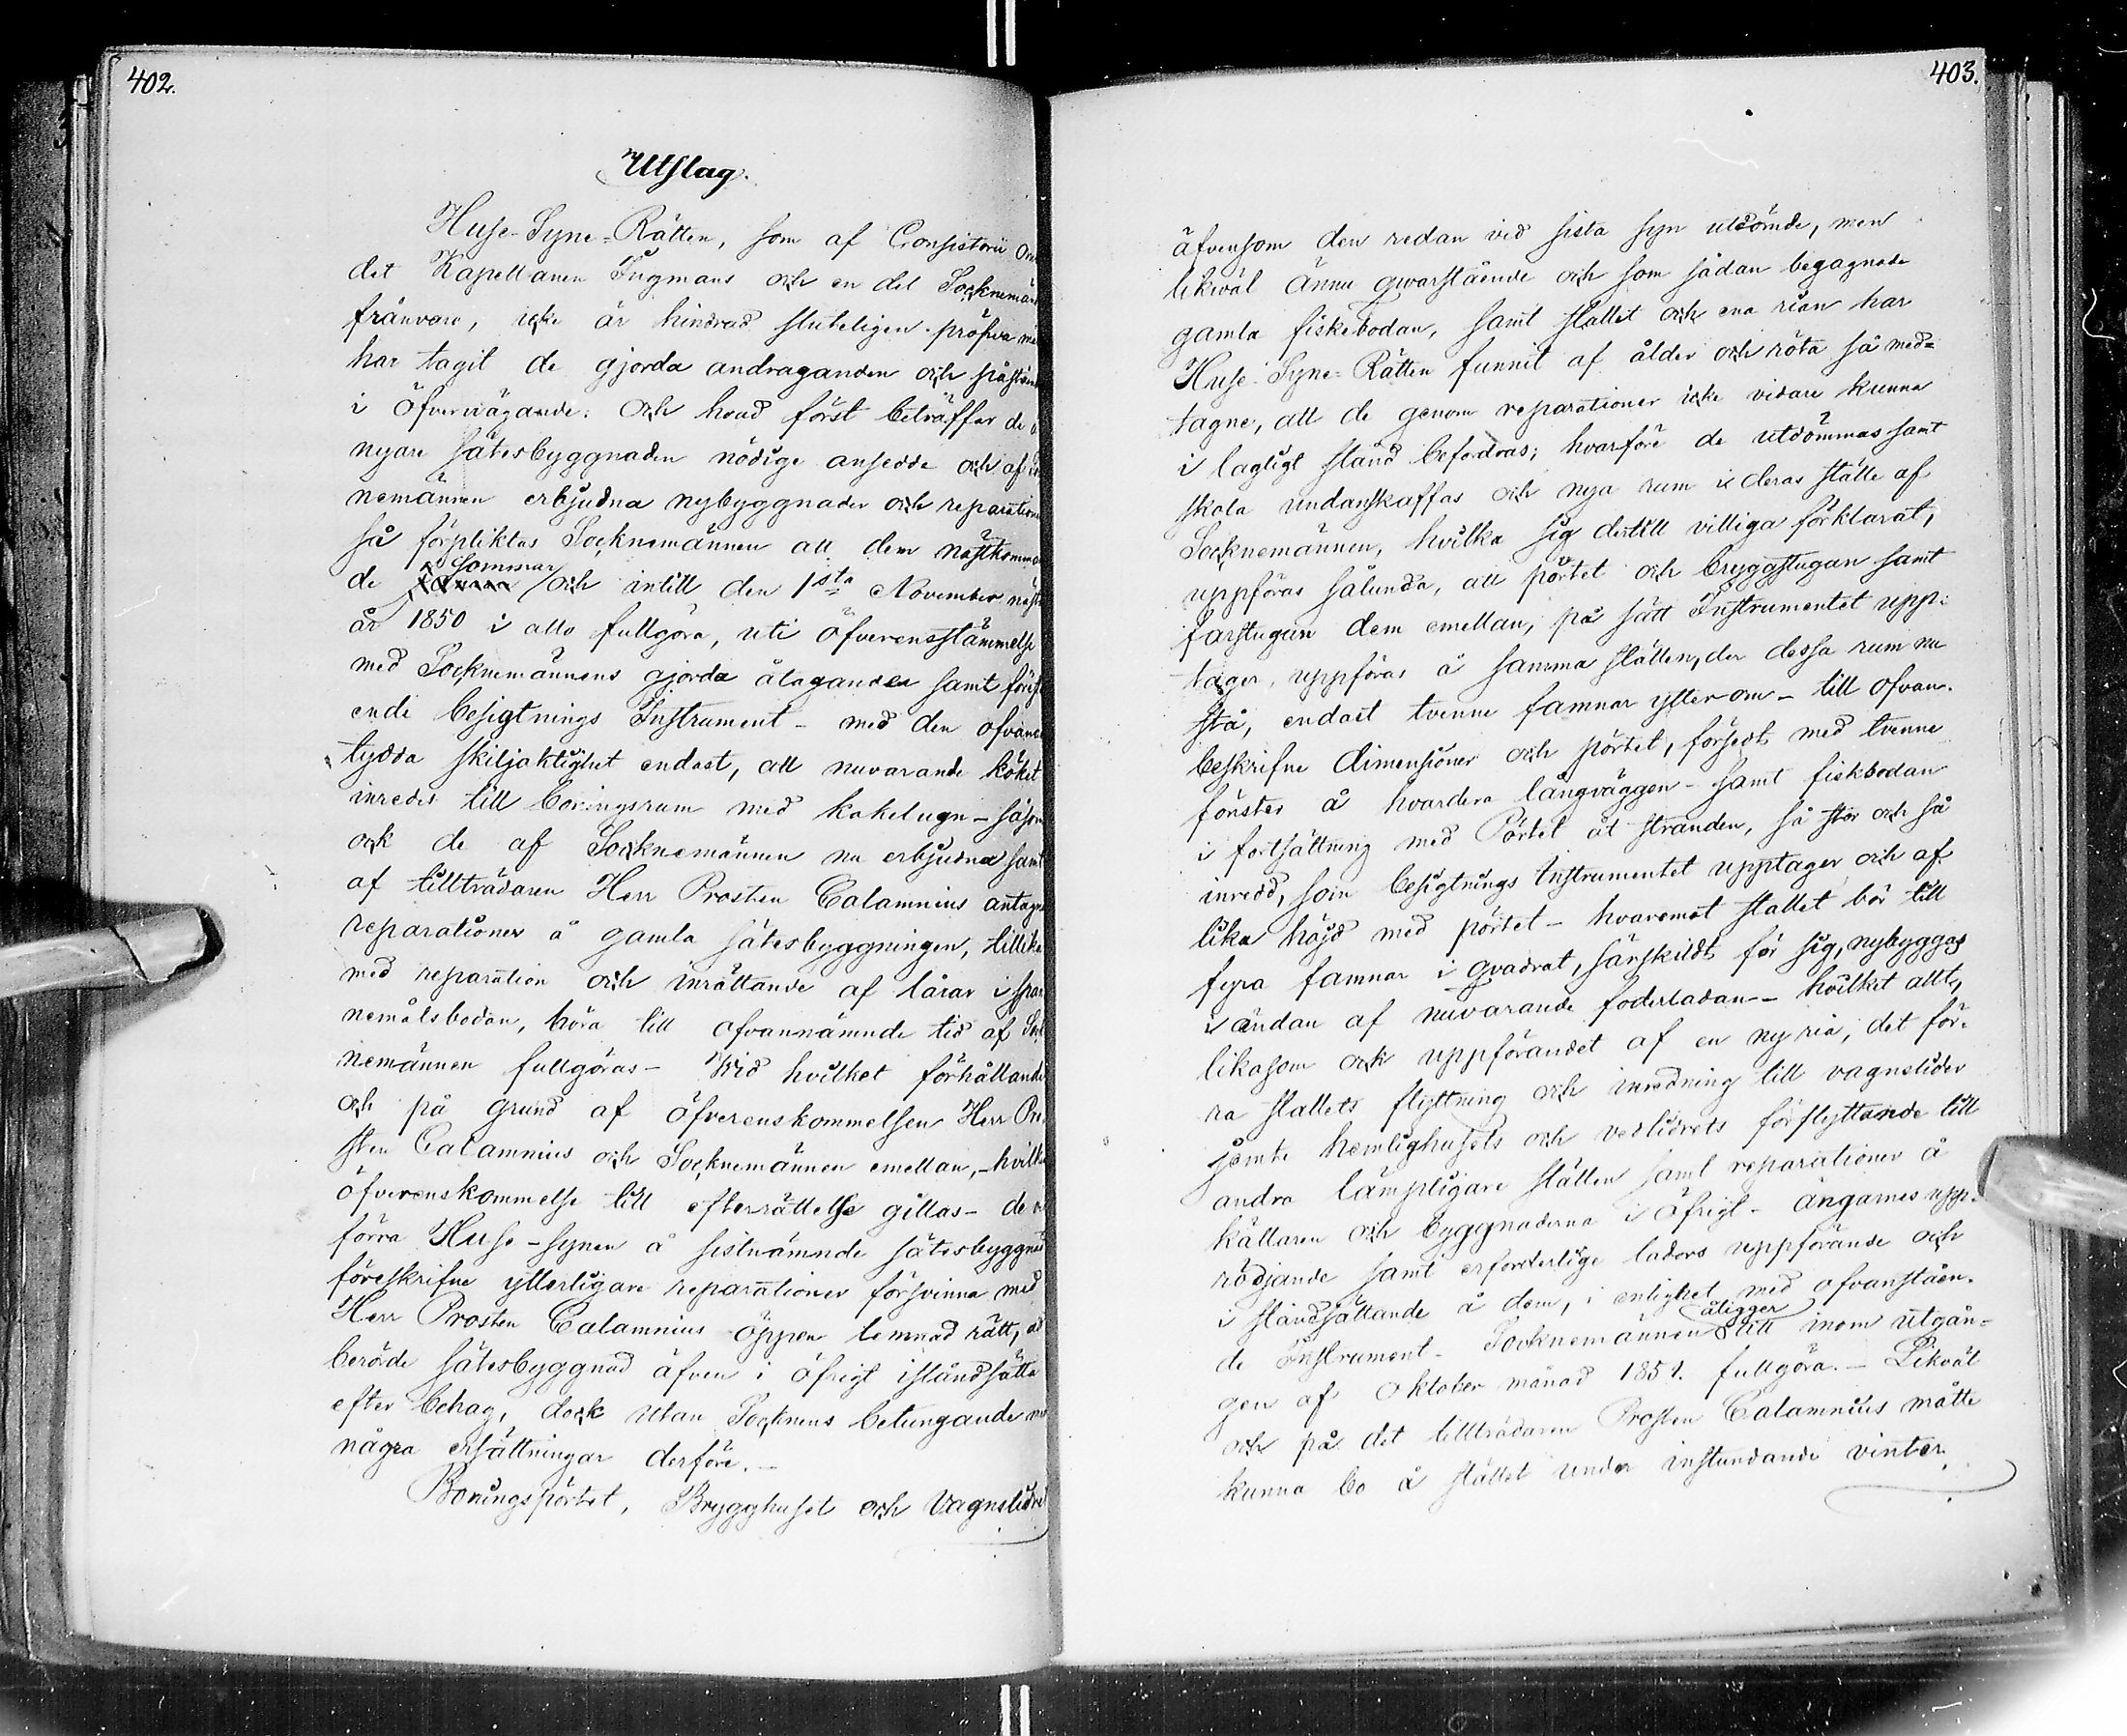 402.
Utslag.
Huse-Syne-Rätten, som af Consistorii Om
det Kapellanen Ingmans och en del Socknemän
frånvaro, icke är hindrad sluteligen pröfva
har tagit de gjorda andraganden och påstå
i öfvervägande: Och hvad först beträffar de
nyare sätesbyggnaden nödige ansedde och af
nemännen erbjudna nybyggnader och reparation
så förpliktas Socknemännen att dem nästkomma
de sommar och intill den 1sta November
år 1850 i allo fullgöra, uti öfverensstämmelse
med Socknemännens gjorda åtaganden samt före
ende besigtnings Instrument - med den ofvan
tydda skiljaktighet endast, att nuvarande köket
inredes till boningsrum med kakelugn - såsom
ock de af Socknemännen nu erbjudna samt
af tillträdaren Herr Prosten Calamnius antagne
reparationer å gamla sätesbyggningen, tillika
med reparation och inrättande af lårar i span
nemålsboden, böra till ofvannämnde tid af Sock
nemännen fullgöras - Wid hvilket förhållande
och på grund af öfverenskommelsen Herr Pro
sten Calamnius och Socknemännen emellan, - hvilken
öfverenskommelse till efterrättelse gillas - de
förra Huse-synen å sistnämnde sätesbyggnad
föreskrifne ytterligare reparationer försvinna med
Herr Prosten Calamnius öppen lemnad rätt, at
berörde sätesbyggnad äfven i öfrigt iståndsätta
efter behag, dock utan Socknens betungande
några ersättningar derföre. -
Boningspörtet, Brygghuset och Vagnslidret
403.
äfvensom den redan vid sista syn utdömde, men
likväl ännu qvarstående och som sådan begagnade
gamla fiskebodan, samt stallet och ena rian har
Huse-Syne-Rätten funnit af ålder och röta så med=
tagne, att de genom reparationer icke vidare kunna
i lagligt stånd befordras; hvarföre de utdömmas samt
skola undanskaffas och nya rum i deras ställe af
Socknemännen, hvilka sig dertill villiga förklarat,
uppföras sålunda, att pörtet och bryggstugan samt
farstugan dem emellan, på sätt Instrumentet upp-
tager, uppföras å samma ställen, der dessa rum nu
stå, endast tvenne famnar ytterom - till ofvan-
beskrifne dimensioner och pörtet, försedt med tvenne
fönster å hvardera långväggen - samt fiskbodan
i fortsättning med Pörtet åt stranden, så stor och så
inredd, som besigtnings Instrumentet upptager och af
lika höjd med pörtet - hvaremot stallet bör till
fyra famnar i qvadrat, särskildt för sig, nybyggas
i ändan af nuvarande foderladan - hvilket allt,
likasom ock uppförandet af en ny ria, det för-
ra stallets flyttning och inredning till vagnslider
jemte hemlighusets och vedlidrets förflyttande till
andra lämpligare ställen samt reparationer å
källaren och byggnaderna i öfrigt - ängarnes upp-
rödjande samt erforderlige ladors uppförande och
iståndsättande å dem, i enlighet med ofvanståen-
de Instrument - Socknemännen åligger till inom utgån-
gen af Oktober månad 1851. fullgöra. - Likväl
och på det tillträdaren Prosten Calamnius måtte
kunna bo å stället under instundande vinter,